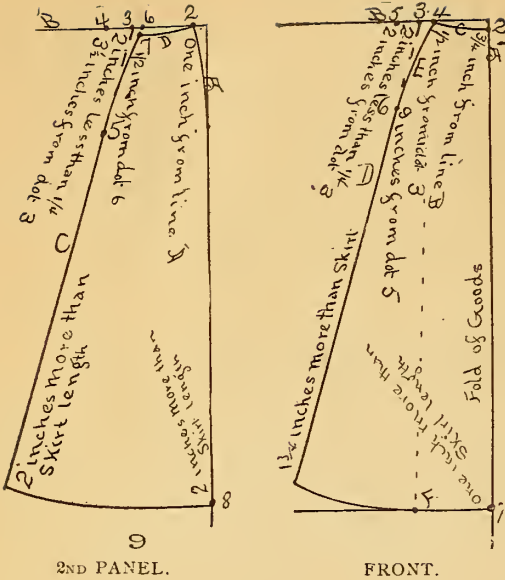 B 4 3 6 2
A
2 inches less than 1/4
3 1/2 inches from dot 3
1/2 inch from dot 6
One inch from line A
5
C
2 inches more than
Skirt length
2 inches more than
Skirt length
8
9
2ND PANEL.
B 5 3 4 C 2
3/4 inch from line B
1/2 inch from dot 3
2 inches less than 1/4
2 inches from dot 3
6
9 inches from dot 5
D
Fold of Goods
1 3/4 inches more than Skirt
one inch more than
Skirt length
7
1
FRONT.